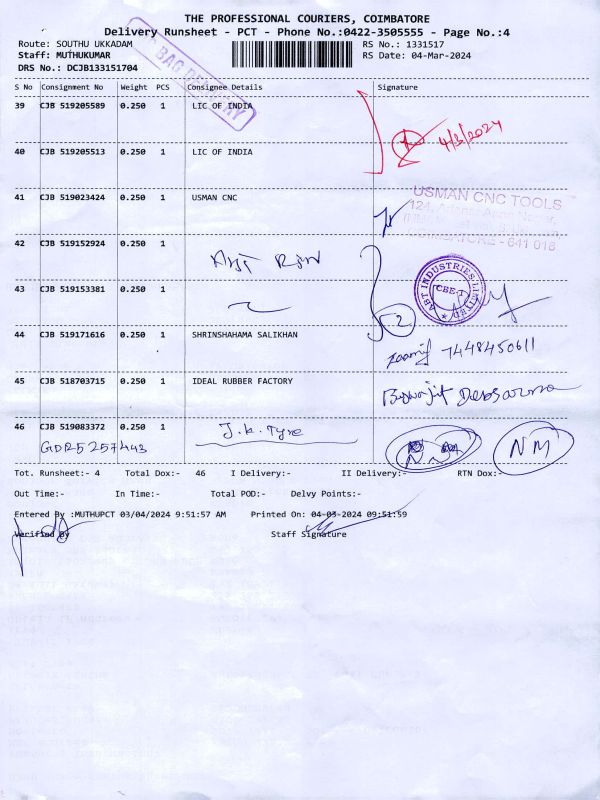 THE PROFESSIONAL COURIERS, COIMBATORE
Delivery Runsheet - PCT - Phone No.:0422-3505555 - Page No.:4
Route: SOUTHU UKKADAM RS No.: 1331517
Staff: MUTHUKUMAR RS Date: 04-Mar-2024
DRS No.: DCJB133151704
BAG DELIVERY
S No Consignment No Weight PCS Consignee Details Signature
39 CJB 519205589 0.250 1 LIC OF INDIA
4/3/2024
40 CJB 519205513 0.250 1 LIC OF INDIA
41 CJB 519023424 0.250 1 USMAN CNC
USMAN CNC TOOLS
COIMBATORE - 641 018
42 CJB 519152924 0.250 1
43 CJB 519153381 0.250 1
ABT INDUSTRIES LIMITED
CBE-1
2
44 CJB 519171616 0.250 1 SHRINSHAHAMA SALIKHAN
7448450611
45 CJB 518703715 0.250 1 IDEAL RUBBER FACTORY
Biswajit Debsarma
46 CJB 519083372 0.250 1 J.K. Tyre
NM
Tot. Runsheet:- 4 Total Dox:- 46 I Delivery:- II Delivery:- RTN Dox:-
Out Time:- In Time:- Total POD:- Delvy Points:-
Entered By :MUTHUPCT 03/04/2024 9:51:57 AM Printed On: 04-03-2024 09:51:59
Verified By Staff Signature